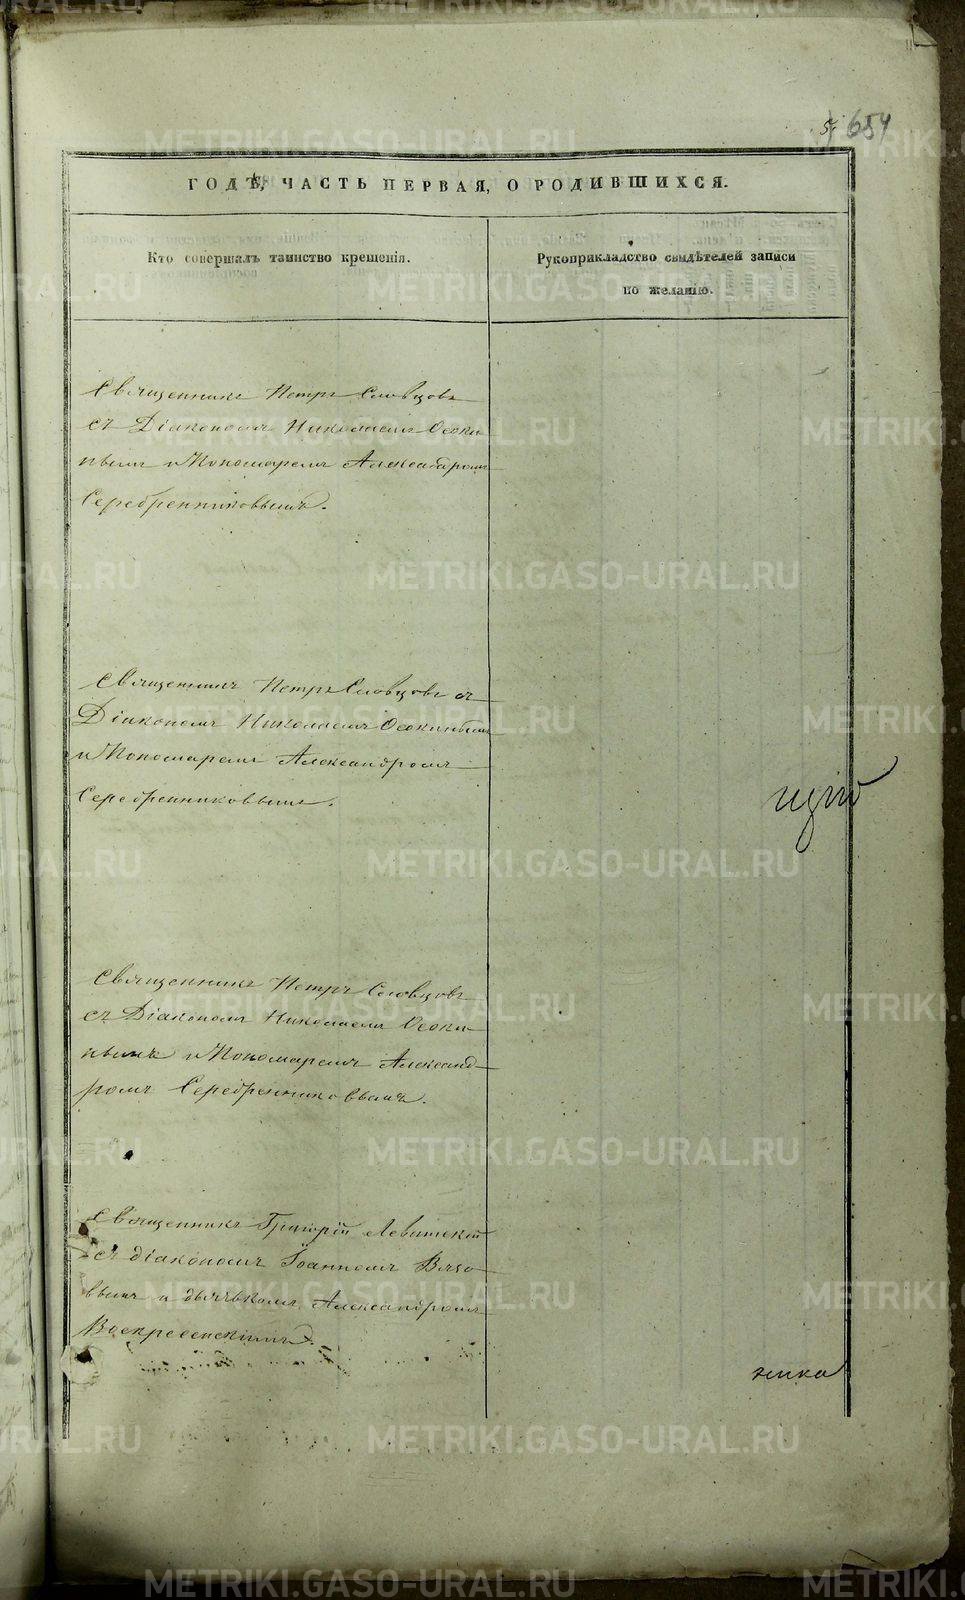 5. 654
ГОДѢ, ЧАСТЬ ПЕРВАЯ, О РОДИВШИХСЯ.
Кто совершалъ таинство крещенія.
Рукоприкладство свидѣтелей записи
по желанію.
Священникъ Петръ Словцовъ
съ Діакономъ Николаемъ Осоки-
нымъ и Пономаремъ Александромъ
Серебренниковымъ.
Священникъ Петръ Словцовъ съ
Діакономъ Николаемъ Осокинымъ
и Пономаремъ Александромъ
Серебренниковымъ.
Священникъ Петръ Словцовъ
съ Діакономъ Николаемъ Осоки-
нымъ и Пономаремъ Александ-
ромъ Серебренниковымъ.
Священникъ Григорій Левитскій
съ діакономъ Іоанномъ
вымъ и дьячькомъ Александромъ
Воскресенскимъ.
ника
METRIKI.GASO-URAL.RU